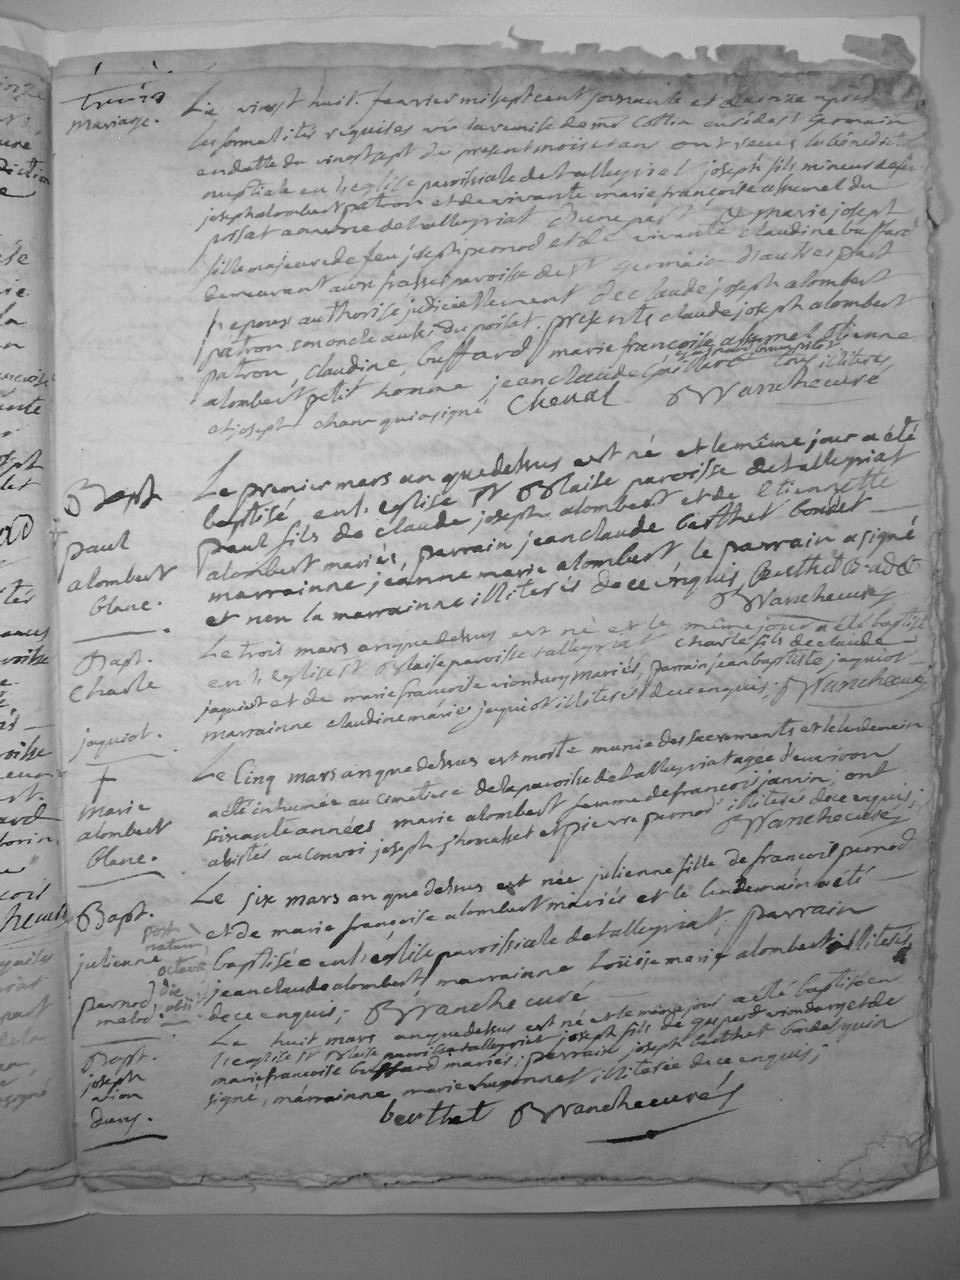 mariage.
Le vingt huit fevrier mil sept cent soixante et après
les formalités requises vu la remise de mr Cottin curé de st Germain
en datte du vingt sept du present mois et an ont receus la bénédiction
nuptiale en l'eglise paroissiale de talleyriat joseph fils mineur de feu
joseph alombert patron et de vivante marie françoise assumel du
poisat annexe de talleyriat d'une part et marie josept
fille majeure de feu joseph pernod et de vivante claudine buffard
demeurant aux frasses paroisse de st germain d'autre part
l'epoux authorisé judiciellement de claude joseph alombert
patron son oncle du poisat. presents claude joseph alombert
patron, claudine buffard, marie françoise assumel etienne
alombert petit honne jean claude tous illiteres
et joseph qui a signé Cheval Blanche curé
Bapt
paul
alombert
blanc.
Le premier mars an que dessus est né et le même jour a été
baptisé en l'eglise st Blaise paroisse de talleyriat
paul fils de claude joseph alombert et de Etiennette
alombert mariés, parrain jean claude berthet bondet
marrainne jeanne marie alombert le parrain a signé
et non la marrainne illiterés de ce enquis, Berthet B
Blanche curé
Bapt.
Charle
jaquiot.
Le trois mars an que dessus est né et le même jour a été baptisé
en l'eglise st Blaise paroisse talleyriat Charle fils de claude
jaquiot et de marie françoise viondury mariés, parrain jean baptiste jaquiot
marrainne claudine marie jaquiot illiterés de ce enquis; Blanche curé
†
Marie
alombert
blanc.
Le Cinq mars an que dessus est morte munie des sacrements et le lendemain
a été inhumée au cimetiere de la paroisse de talleyriat agée d'environ
soixante années marie alombert femme de françois jannin; ont
assistés au convoi joseph thomasset et pierre pernod illiterés de ce enquis;
Blanche curé
Bapt.
julienne
pernod
melod.
post
natum
octava
die
obiit
Le six mars an que dessus est née julienne fille de françois pernod
et de marie françoise alombert mariés et le lendemain a été
baptisée en l'église paroissiale de talleyriat, parrain
jean claude alombert, marrainne Loüise marie alombert illiterés
de ce enquis; Blanche curé
Bapt.
joseph
vion
dury.
Le huit mars an que dessus est né et le même jour a été baptisé en
l'eglise st Blaise paroisse talleyriat joseph fils de gaspard viondury et de
marie françoise buffard mariés; parrain joseph berthet bondet qui a
signé, marrainne marie illiterée de ce enquis;
berthet Blanche curé